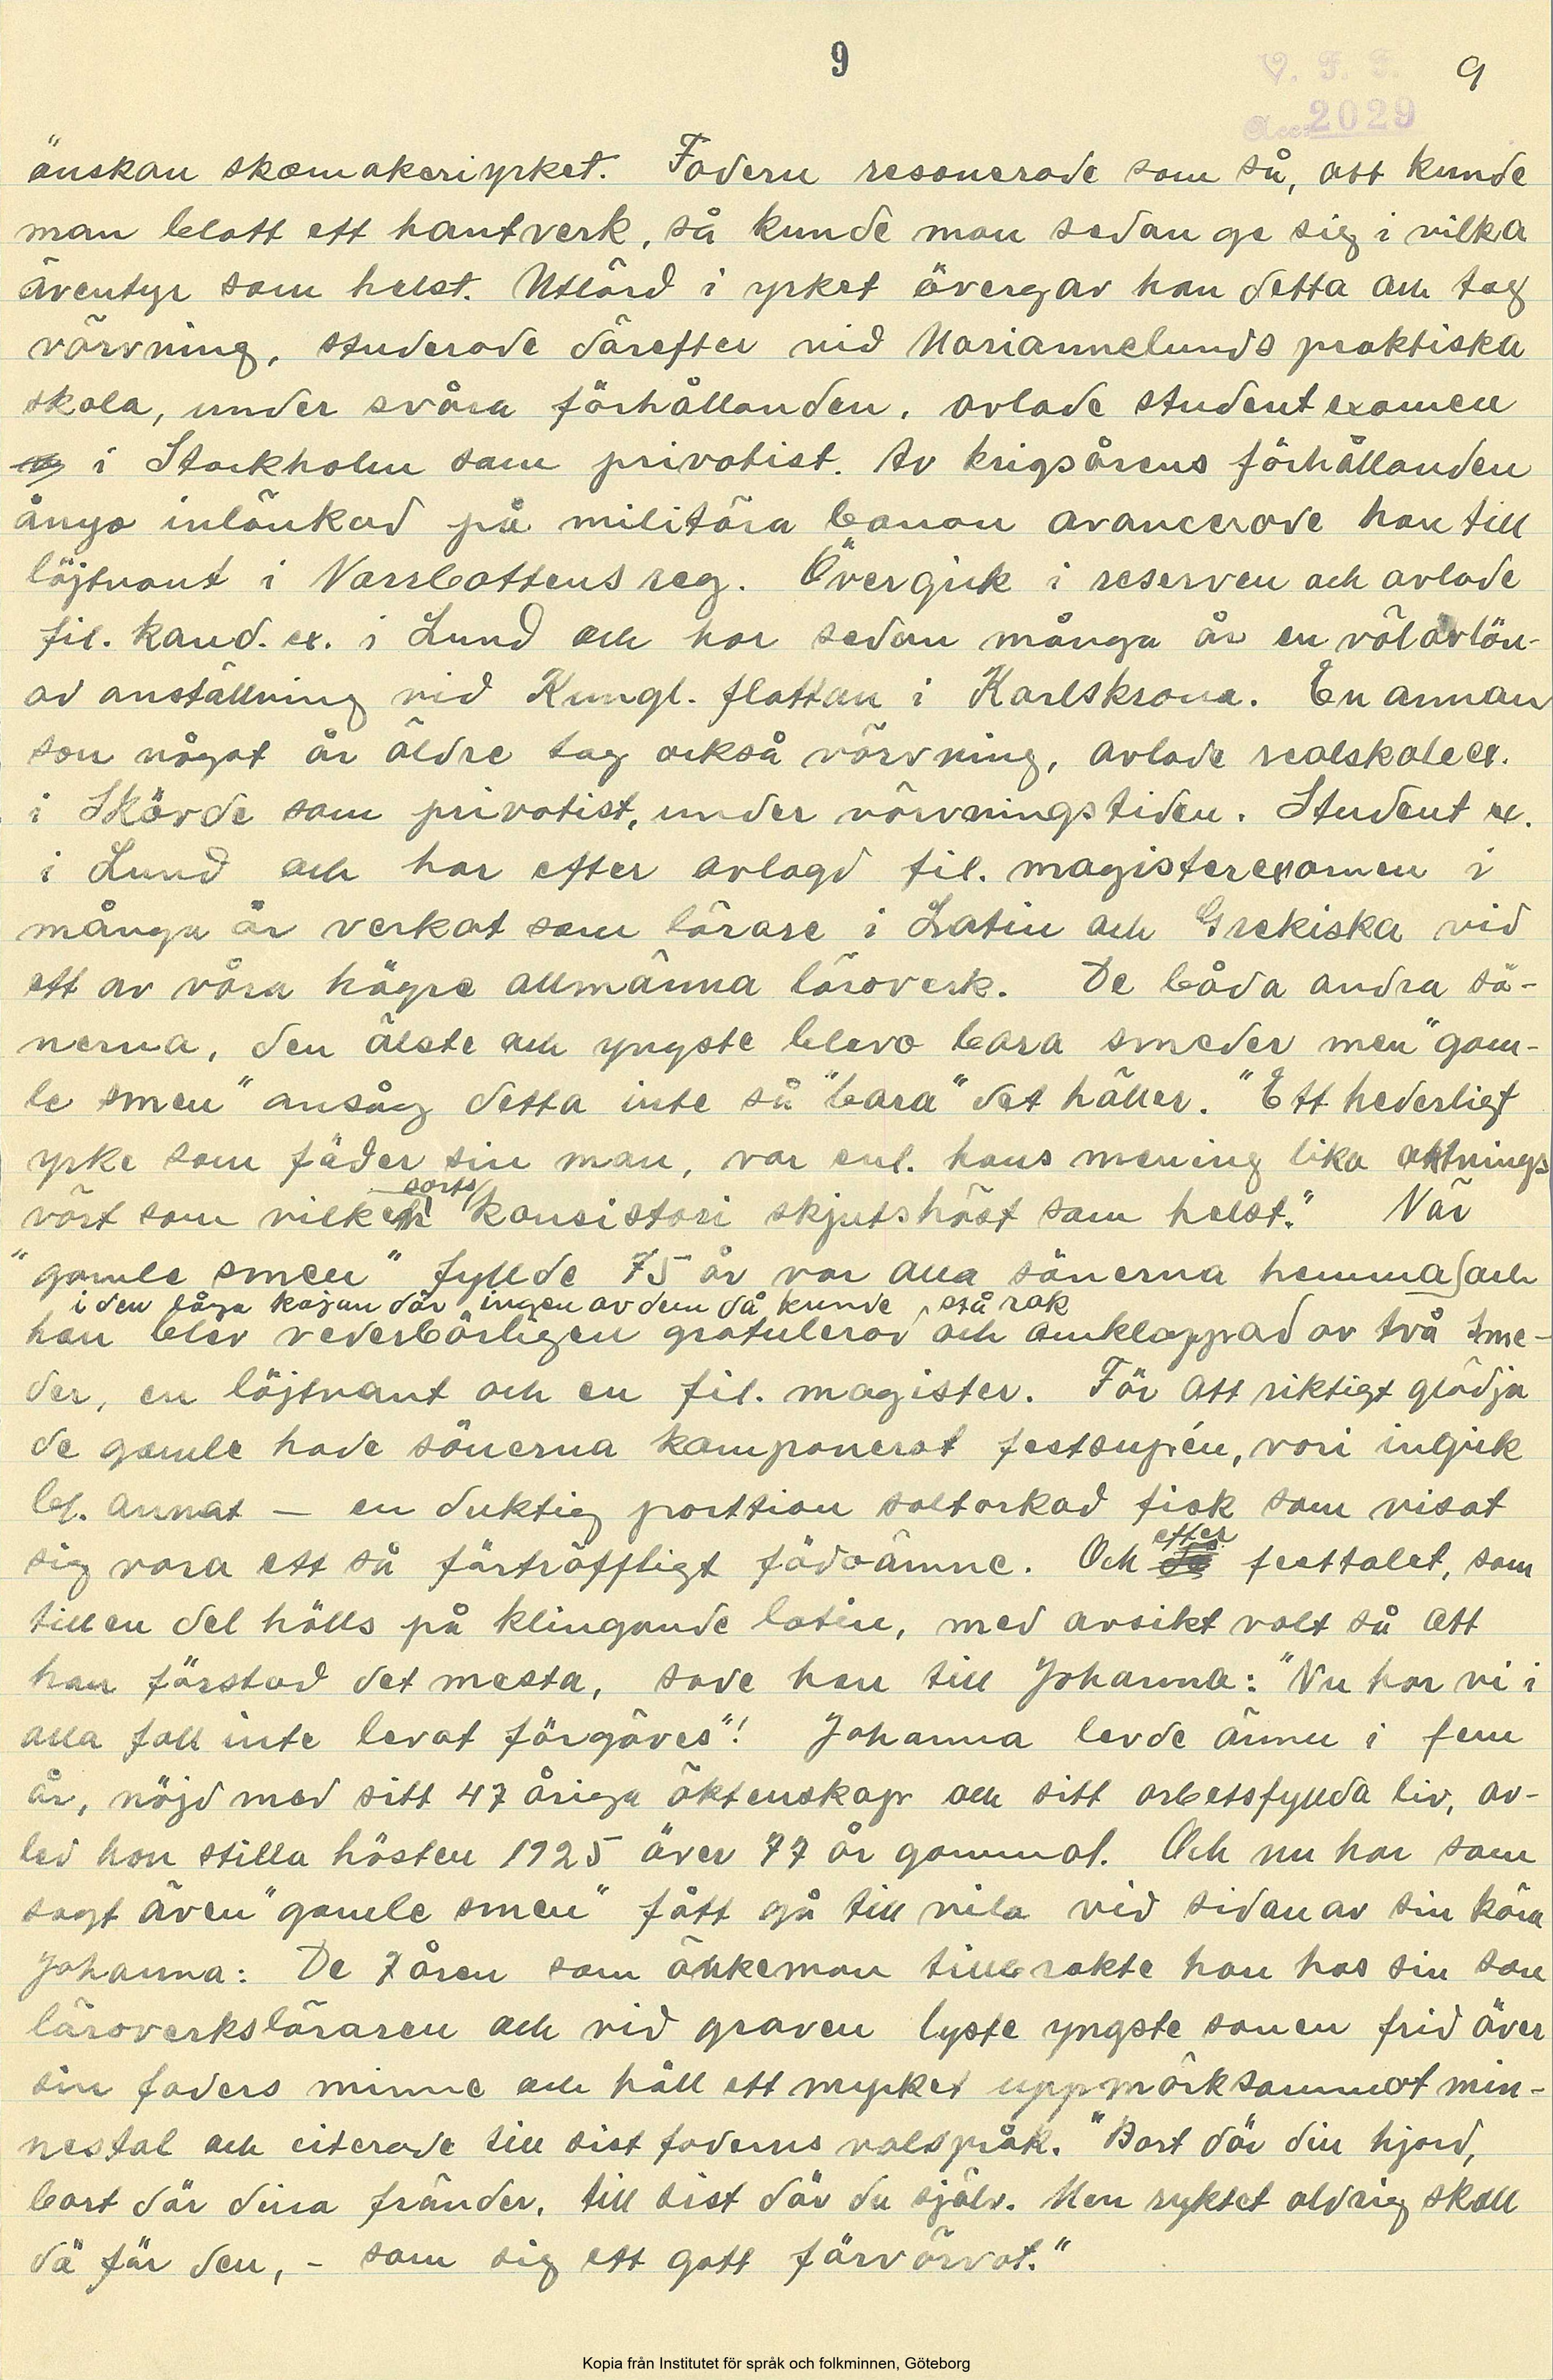 9
V. F. F. 9
Acc. 2029
önskan skomakeriyrket. Fadern resonerade som så, att kunde
man blott ett hantverk, så kunde man sedan ge sig i vilka
äventyr som helst. Utlärd i yrket övergav han detta och tog
värvning, studerade därefter vid Mariannelunds praktiska
skola, under svåra förhållanden, avlade studentexamen
i Stockholm som privatist. Av krigsårens förhållanden
ånyo inlänkad på militära banan avancerade han till
löjtnant i Norrbottens reg. Övergick i reserven och avlade
fil. kand. ex. i Lund och har sedan många år en välavlön-
ad anställning vid Kungl. flottan i Karlskrona. En annan
son något år äldre tog också värvning, avlade realskoleex.
i Skövde som privatist, under värvningstiden. Student ex.
i Lund och har efter avlagd fil. magisterexamen i
många år verkat som lärare i Latin och Grekiska vid
ett av våra högre allmänna läroverk. De båda andra sö-
nerna, den älste och yngste blevo bara smeder men "gam-
le smen" ansåg detta inte så "bara" det häller. "Ett hederligt
yrke som föder sin man, var enl. hans mening lika aktnings
sorts
värt som vilken konsistori skjutshäst som helst." När
"gamle smen" fyllde 75 år var alla sönerna hemma och
i den låga kojan där ingen av dem då kunde stå rak
han blev vederbörligen gratulerad och omklappad av två sme-
der, en löjtnant och en fil. magister. För att riktigt glädja
de gamle hade sönerna komponerat festsupén, vari ingick
bl. annat — en duktig porttion saltorkad fisk som visat
sig vara ett så förträffligt födoämne. Och efter festtalet, som
till en del hölls på klingande latin, med avsikt valt så att
han förstod det mesta, sade han till Johanna: "Nu har vi i
alla fall inte levat förgäves"! Johanna levde ännu i fem
år, nöjd med sitt 47 åriga äktenskap och sitt arbetsfyllda liv, av-
led hon stilla hösten 1925 över 77 år gammal. Och nu har som
sagt även "gamle smen" fått gå till vila vid sidan av sin kära
Johanna: De 7 åren som änkeman tillbrakte han hos sin son
läroverksläraren och vid graven lyste yngste sonen frid över
sin faders minne och höll ett mycket uppmärksammat min-
nestal och citerade till sist faderns valspråk. "Bort dör din hjord,
bort dör dina fränder, till sist dör du själv. Men ryktet aldrig skall
dö för den, – som sig ett gott förvärvat."
Kopia från Institutet för språk och folkminnen, Göteborg